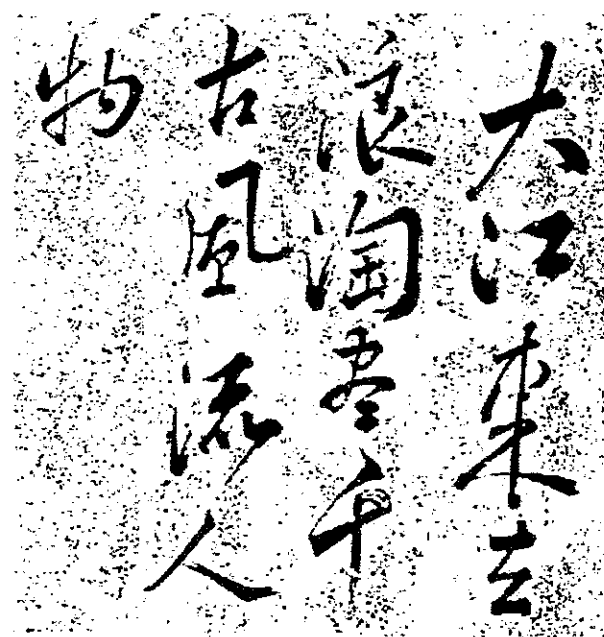 大江東去
浪淘尽千
古風流人
物